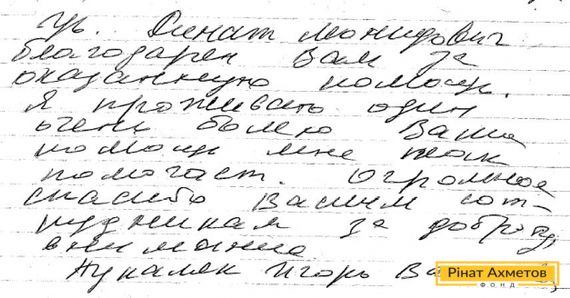 Ув. Ринат Леонидович
благодарен Вам за
оказанную помощь.
Я проживать один
очень болею Ваша
помощь мне так
помогает. Огромное
спасибо Вашим сот-
рудникам за доброту,
внимание
Игорь
Рінат Ахметов
ФОНД